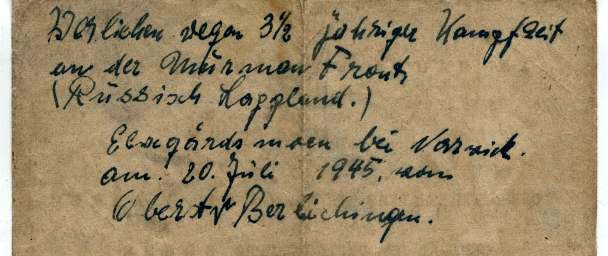 Verliehen wegen 3½ jähriger Kampfzeit
an der Murman Front
(Russisch Lappland.)
Elvegårdsmoen bei Narwick.
am. 20. Juli 1945. vom
Oberst v Berlichingen.